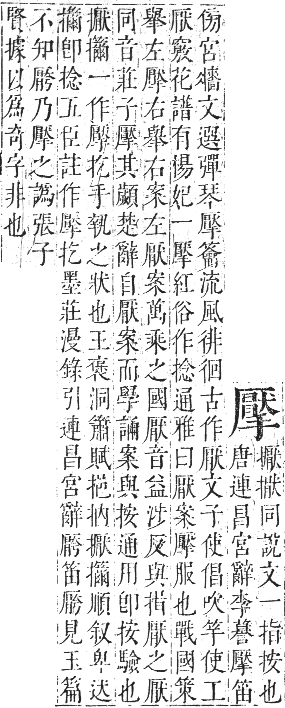 擪
擫同說文一指按也
唐連昌宮辭李謩擪笛
傍宮牆文選彈琴擪籥流風徘徊古作厭文子使倡吹竽使工
厭竅花譜有楊妃一擪紅俗作捻通雅曰厭案擪服也戰國策
舉左擪右舉右案左厭案萬乘之國厭音益涉反與指厭之厭
同音莊子擪其顪楚辭自厭案而學誦案與按通用卽按驗也
擫擶一作擪扢手執之狀也王褒洞簫賦挹抐擫擶順叙卑迖
擶卽捻五臣註作擪扢墨莊漫錄引連昌宮辭笛見玉篇
不知乃擪之譌張子
賢據以爲奇字非也